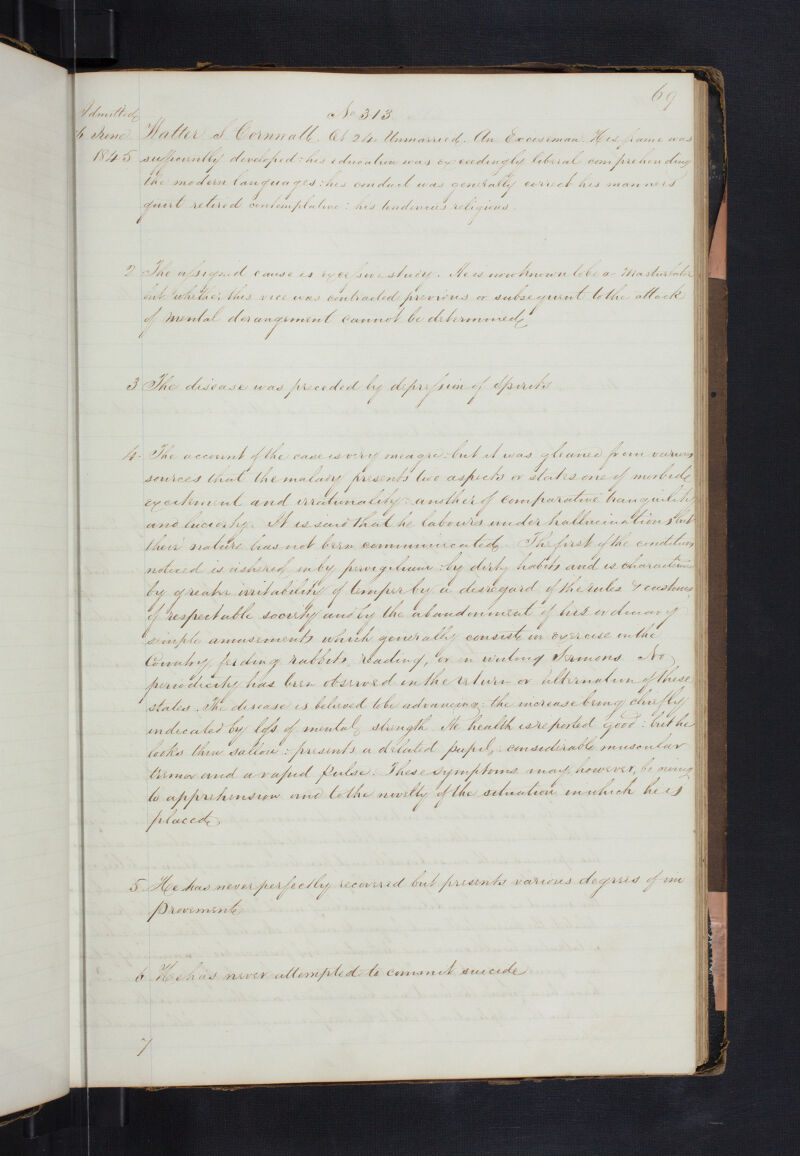 69
Admitted No 313
6 June Walter S. Cornwall. Æt 24. Unmarried. An Exciseman. His frame was
1845 sufficiently developed: his education was exceedingly liberal comprehending
the modern languages: his conduct was generally correct his manners
quiet retired contemplative: his tendencies religious.
2 The assigned cause is excessive study. He is now known to be a Masturbator
but whether this vice was contracted previous or subsequent to the attack
of mental derangement cannot be determined
3 The disease was preceded by depression of Spirits
4 The account of the case is very meagre: but it was gleaned from various
sources that the malady presents two aspects or states one of morbid
excitement and irrationality: another of comparative tranquility
and lucidity. It is said that he labours under hallucinations but
their nature has not been communicated. The first of the conditions
noticed is ushered in by pervigilium: by dirty habits and is characterised
by greater irritability of temper by a disregard of the rules & customs
of respectable society and by the abandonment of his ordinary
simple amusements which generally consists in exercise in the
Country, feeding rabbits, reading, or in writing Sermons. No
periodicity has been observed in the return or alternation of these
states. The disease is believed to be advancing: the increase being chiefly
indicated by loss of mental strength. He health is reported good: but he
looks thin sallow: presents a dilated pupil, considerable muscular
tremor and a rapid pulse. These symptoms may, however, be owing
to apprehension and to the novelty of the situation in which he is
placed.
5 He has never perfectly recovered but presents various degrees of im
provement
6 He has never attempted to commit suicide
7